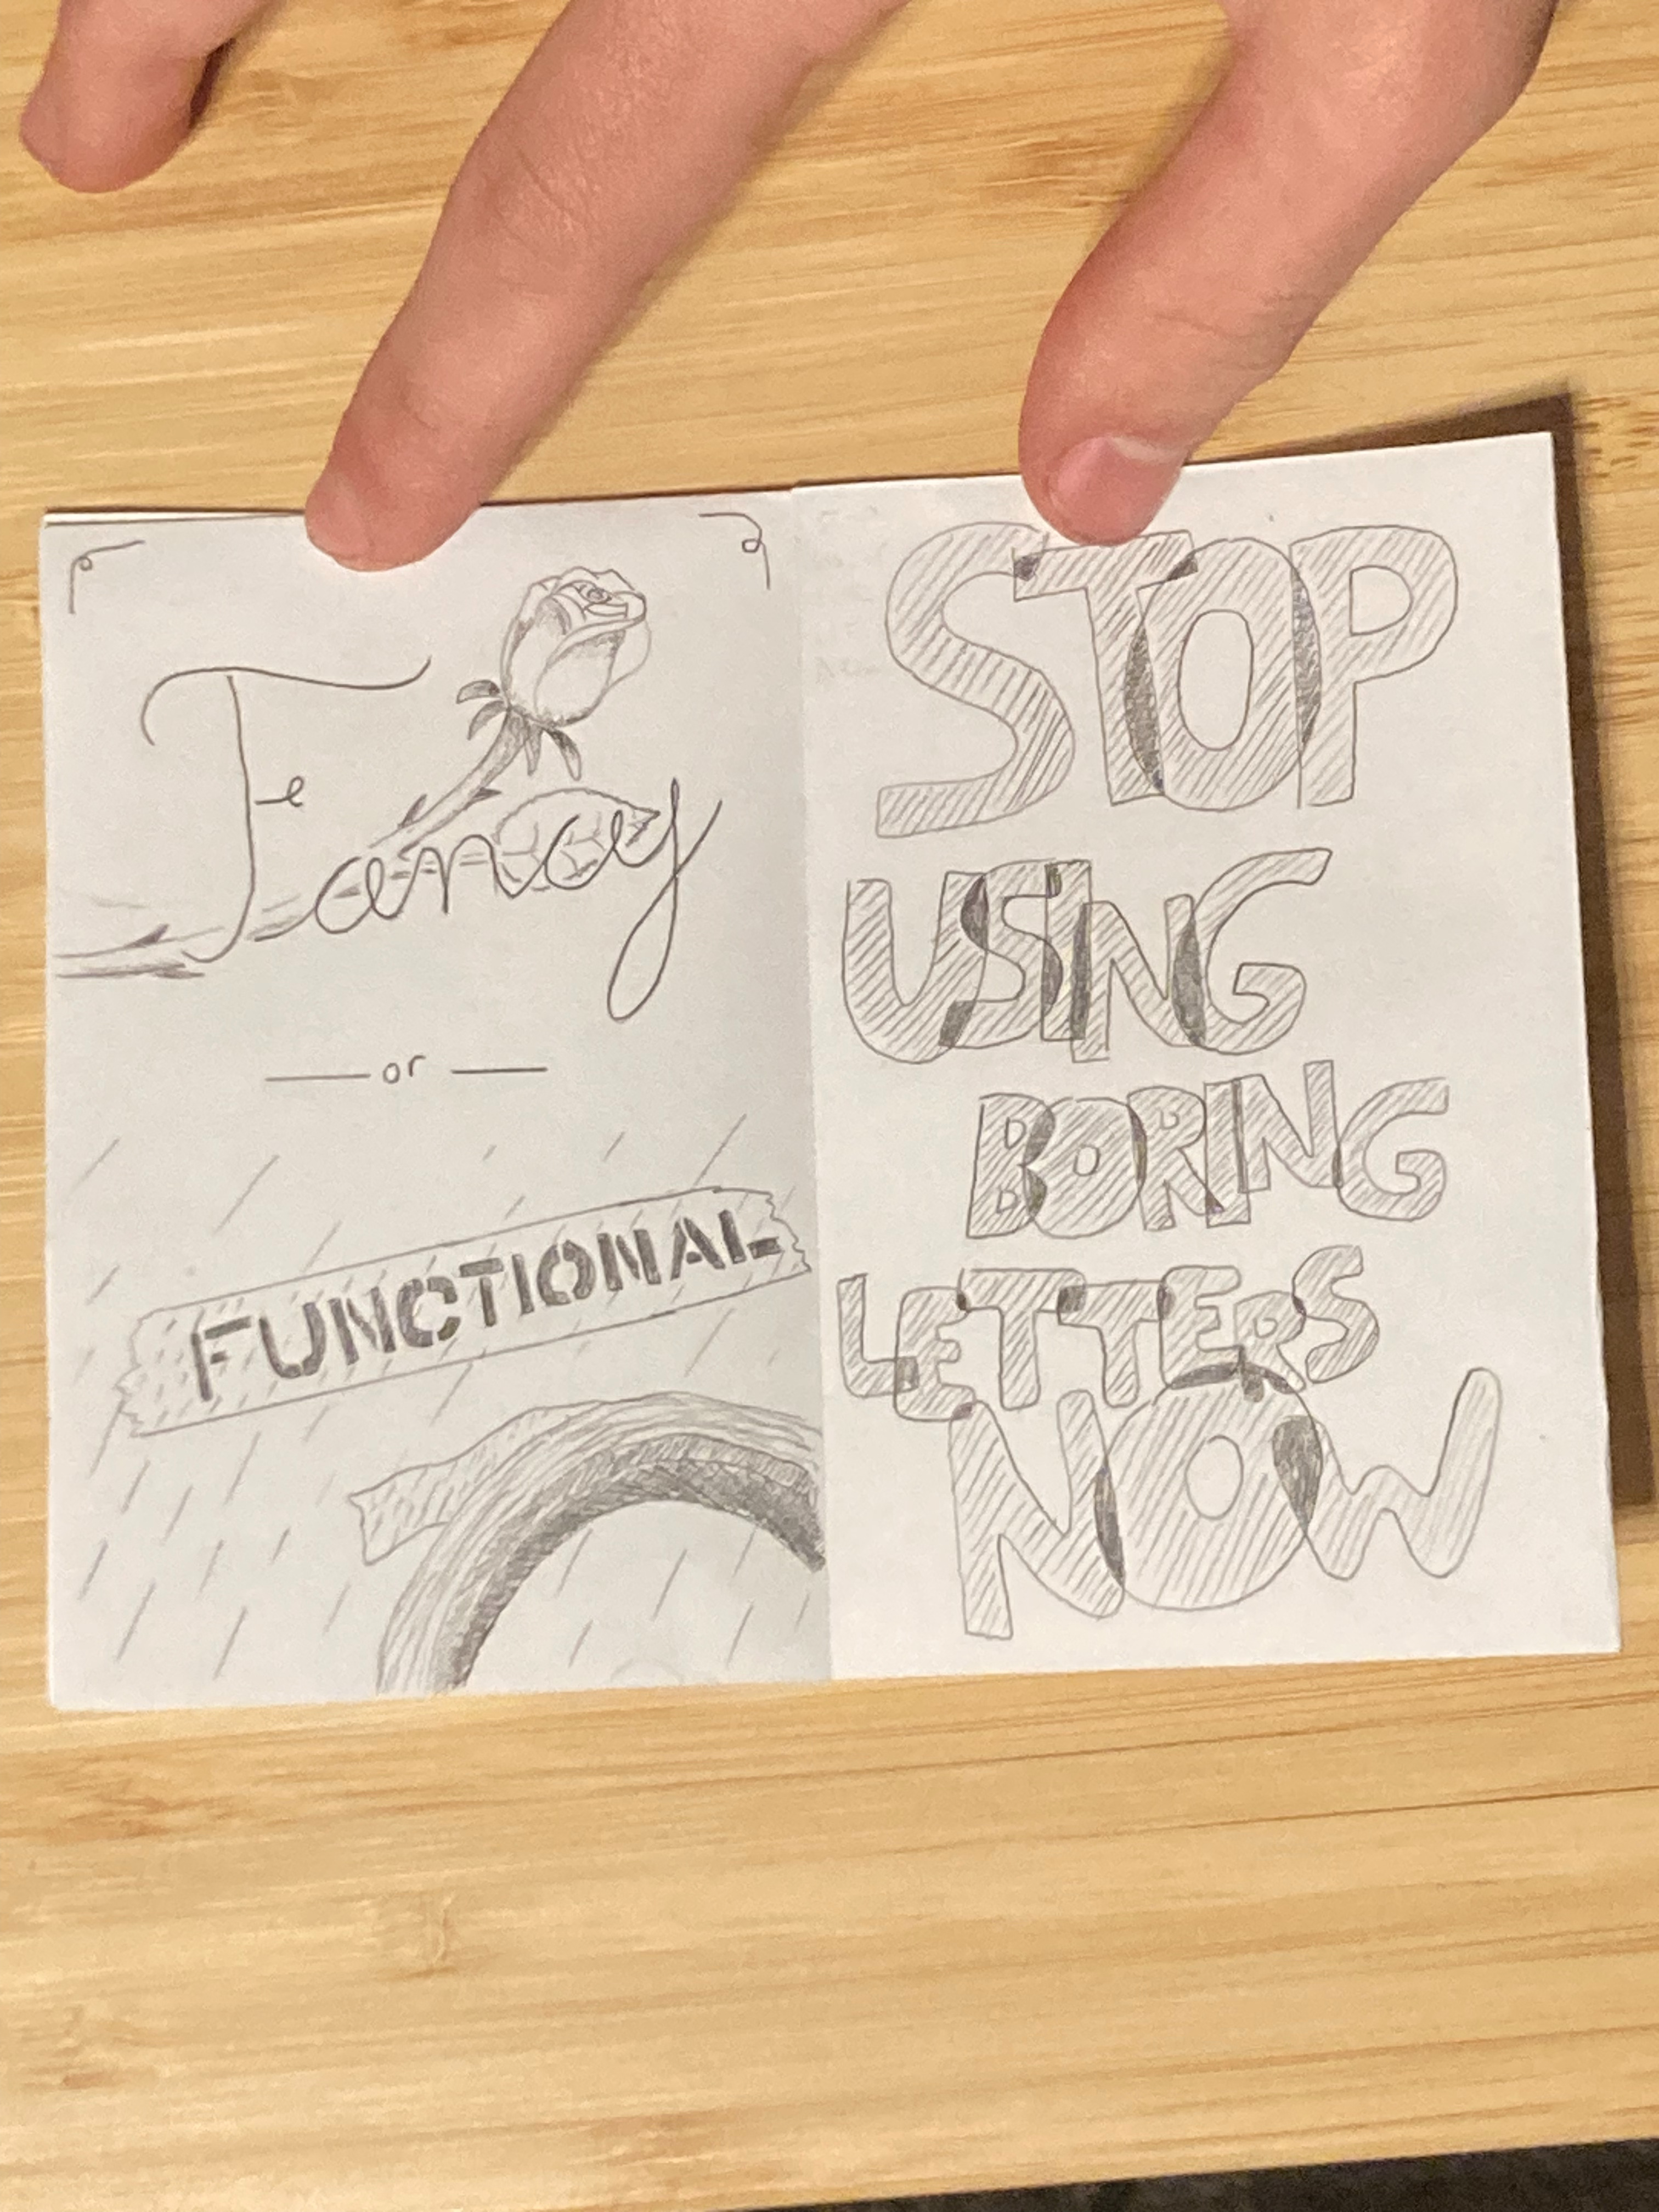 Fancy
or
FUNCTIONAL
STOP
USING
BORING
LETTERS
NOW